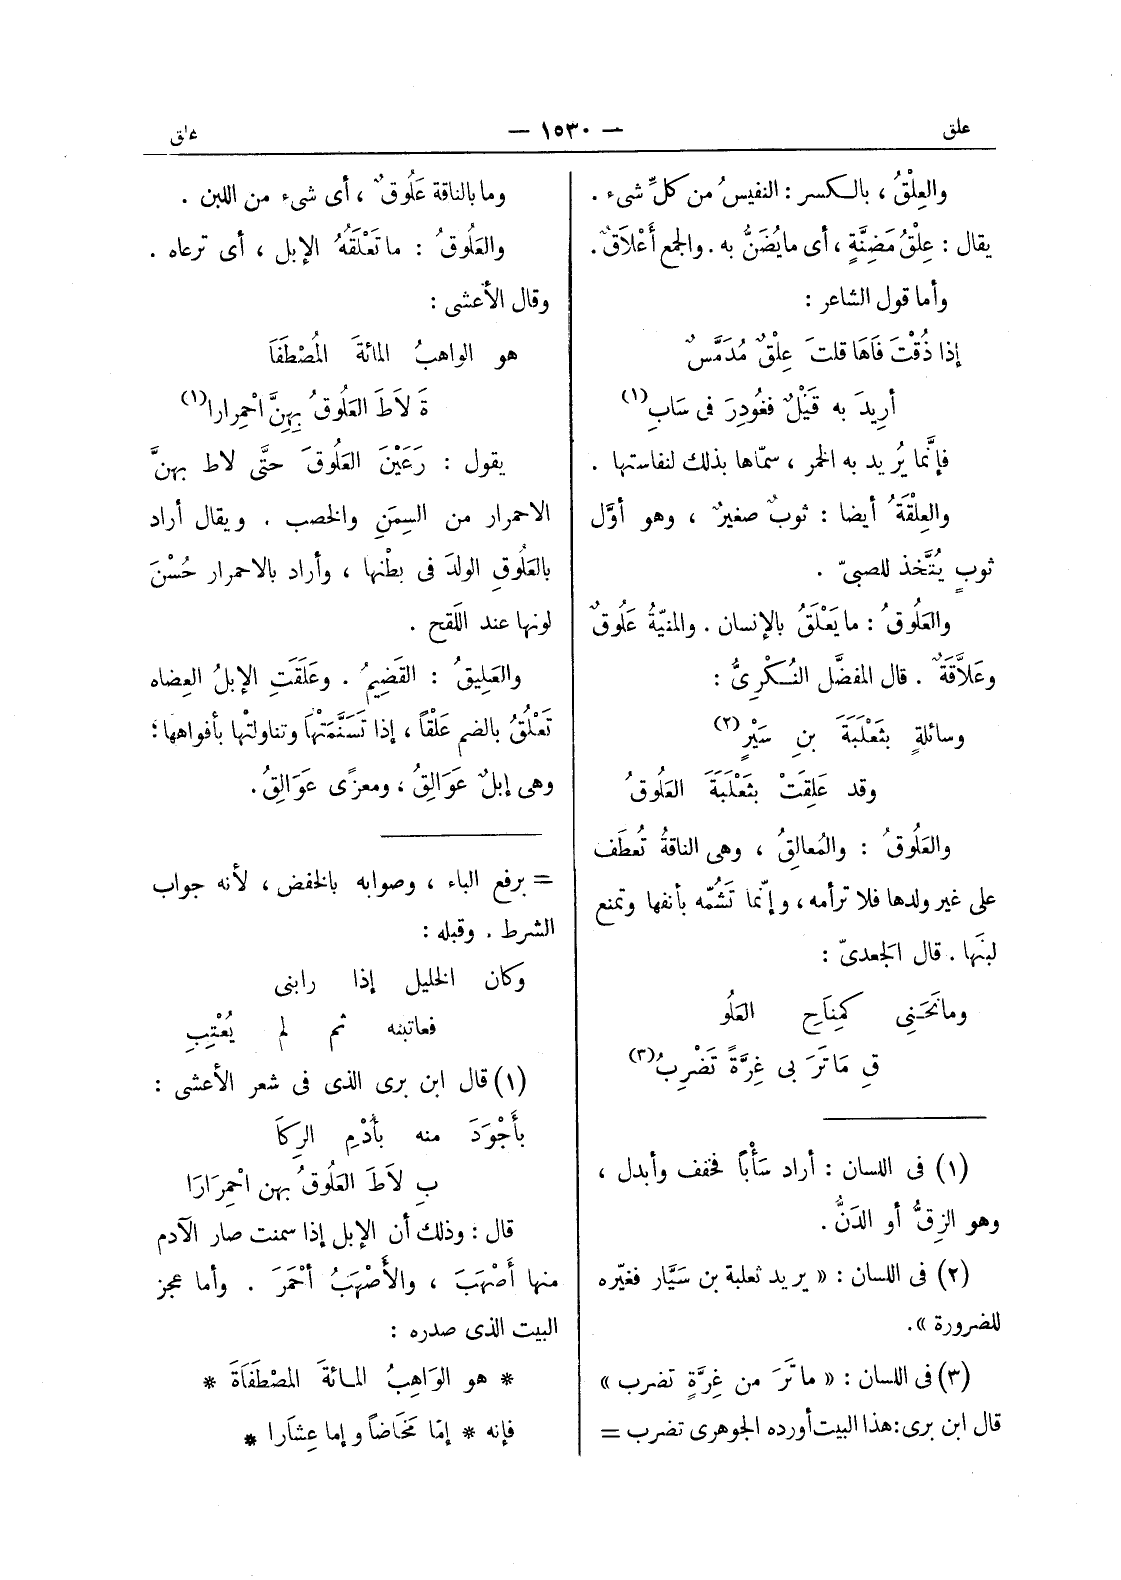 علق
— ١٥٣٠ —
علق
والعِلْقُ ، بالكسر : النفيسُ من كلِّ شىء .
يقال : عِلْقُ مَضِنَّةٍ ، أى مايُضَنُّ به . والجمع أَعْلَاقٌ .
وأما قول الشاعر :
إذا ذُقْتَ فَاهَا قلتَ عِلْقٌ مُدَمَّسٌ
أرِيدَ به قَيْلٌ فغُودِرَ فى سَابِ (١)
فإنَّما يُريد به الخمر ، سمّاها بذلك لنفاستها .
والعِلْقَةُ أيضا : ثوبٌ صغيرٌ ، وهو أوَّل
ثوبٍ يُتَّخذ للصبىّ .
والعَلُوقُ : ما يَعْلَقُ بالإنسان . والمنيّةُ عَلُوقٌ
وعَلاَّقَةٌ . قال المفضَّل النُكْرِىُّ :
وسائلةٍ بثَعْلَبَةَ بنِ سَيْرٍ (٢)
وقد عَلِقَتْ بثَعْلَبَةَ العَلُوقُ
والعَلُوقُ : والمُعالِقُ ، وهى الناقةُ تُعطَف
على غير ولدها فلا ترأمه ، وإنّما تَشُمّه بأنفها وتمنع
لبنَها . قال الجعدىّ :
ومانَحَنِى كَمِنَاحِ العَلُو
قِ مَا تَرَ بى غِرَّةً تَضْرِبُ (٣)
(١) فى اللسان : أراد سَأْباً فخفف وأبدل ،
وهو الزِقُّ أو الدَنُّ .
(٢) فى اللسان : « يريد ثعلبة بن سَيَّار فغيّره
للضرورة » .
(٣) فى اللسان : « ما تَرَ من غِرَّةٍ تضرب »
قال ابن برى : هذا البيت أورده الجوهرى تضرب =
وما بالناقة عَلُوقٌ ، أى شىء من اللبن .
والعَلُوقُ : ما تَعْلَقُهُ الإبل ، أى ترعاه .
وقال الأعشى :
هو الواهبُ المائةَ المُصْطَفَا
ةَ لاَطَ العَلُوقُ بِهِنَّ احْمِرارا (١)
يقول : رَعَيْنَ العَلُوقَ حتَّى لاط بهنَّ
الاحمرار من السِمَنِ والخصب . ويقال أراد
بالعَلُوقِ الولدَ فى بطْنها ، وأراد بالاحمرار حُسْنَ
لونها عند اللَقح .
والعَلِيقُ : القَضِيمُ . وعَلَقَتِ الإبلُ العِضاه
تَعْلُقُ بالضم عَلْقاً ، إذا تَسَنَّمَتْها وتناولتْها بأفواهها ؛
وهى إبلٌ عَوَالِقُ ، ومعزًى عَوَالِقُ .
= برفع الباء ، وصوابه بالخفض ، لأنه جواب
الشرط . وقبله :
وكان الخليل إذا رابنى
فعاتبته ثم لم يُعْتِبِ
(١) قال ابن برى الذى فى شعر الأعشى :
بأَجْوَدَ منه بأُدْمِ الرِكاَ
بِ لاَطَ العَلُوقُ بهن احْمِرَارَا
قال : وذلك أن الإبل إذا سمنت صار الآدم
منها أَصْهَبَ ، والأَصْهَبُ أحْمَرَ . وأما عجز
البيت الذى صدره :
* هو الوَاهِبُ المائةَ المصْطَفَاَةَ *
فإنه * إمّا مَخَاضاً وإما عِشاَرا *